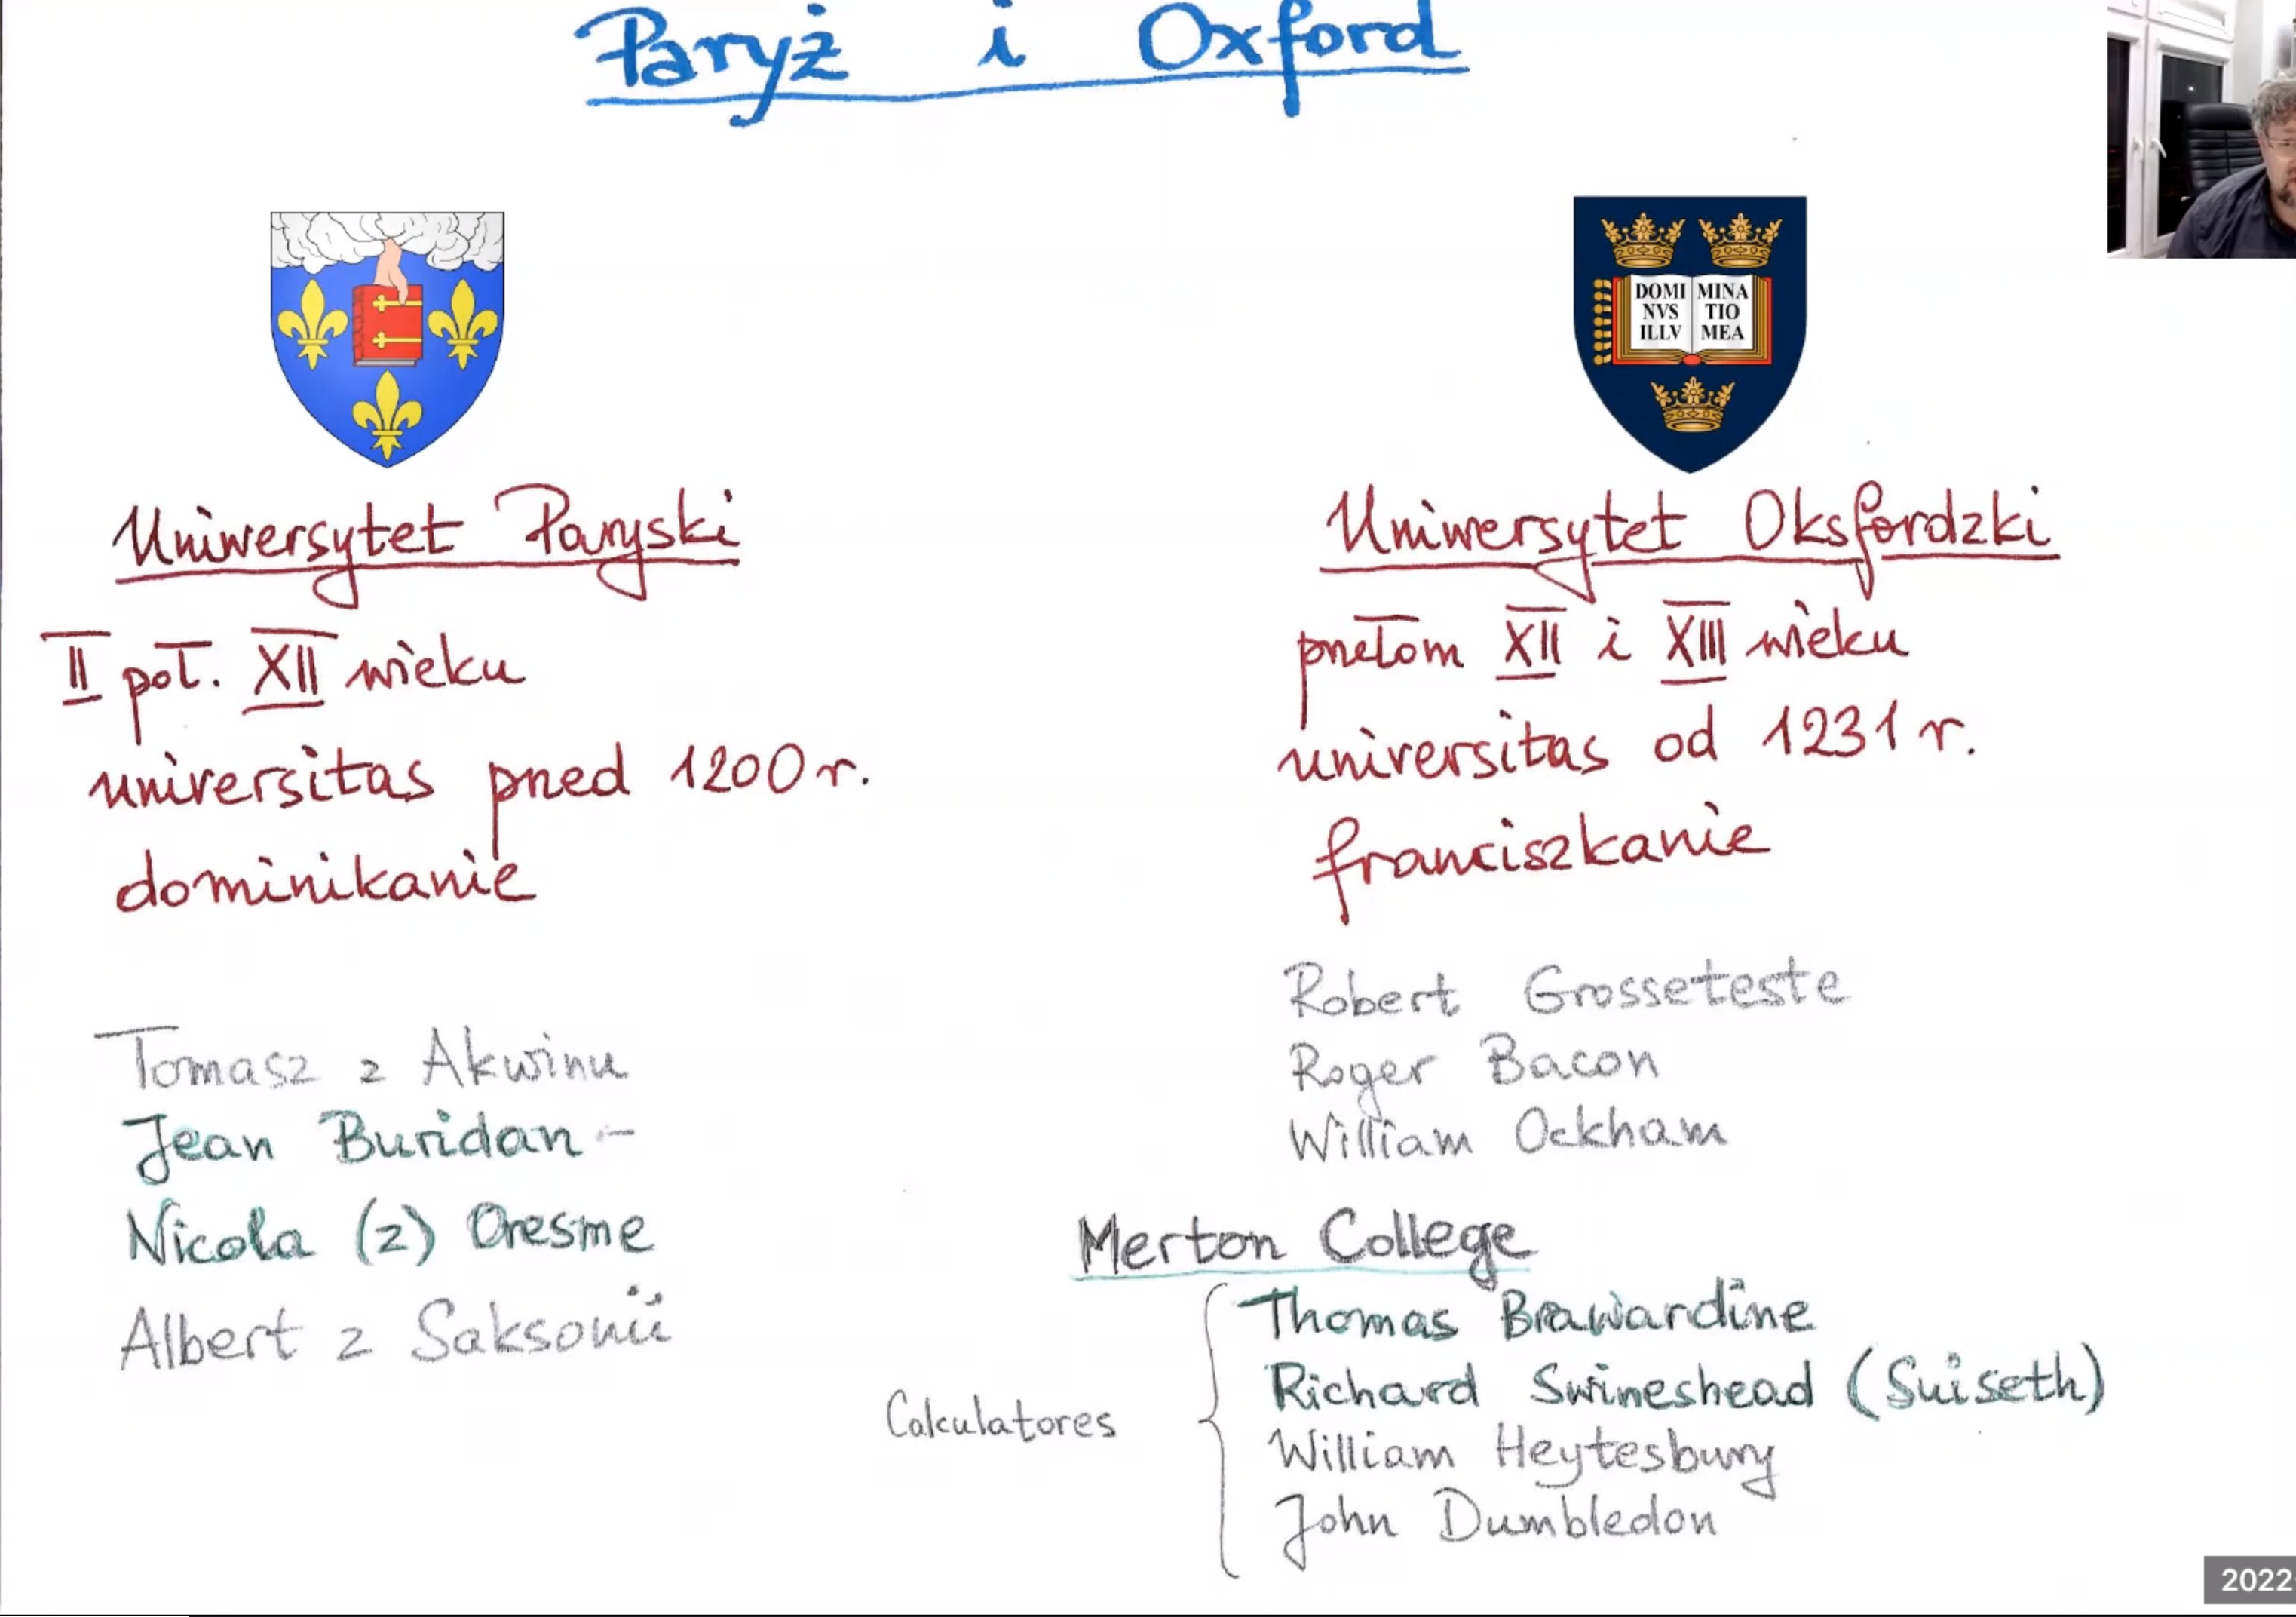 Paryż i Oxford
DOMI MINA
NVS TIO
ILLV MEA
Uniwersytet Paryski
II poł. XII wieku
universitas przed 1200 r.
dominikanie
Tomasz z Akwinu
Jean Buridan –
Nicola (z) Oresme
Albert z Saksonii
Uniwersytet Oksfordzki
przełom XII i XIII wieku
universitas od 1231 r.
franciszkanie
Robert Grosseteste
Roger Bacon
William Ockham
Merton College
Calculatores
Thomas Brawardine
Richard Swineshead (Suiseth)
William Heytesbury
John Dumbledon
2022